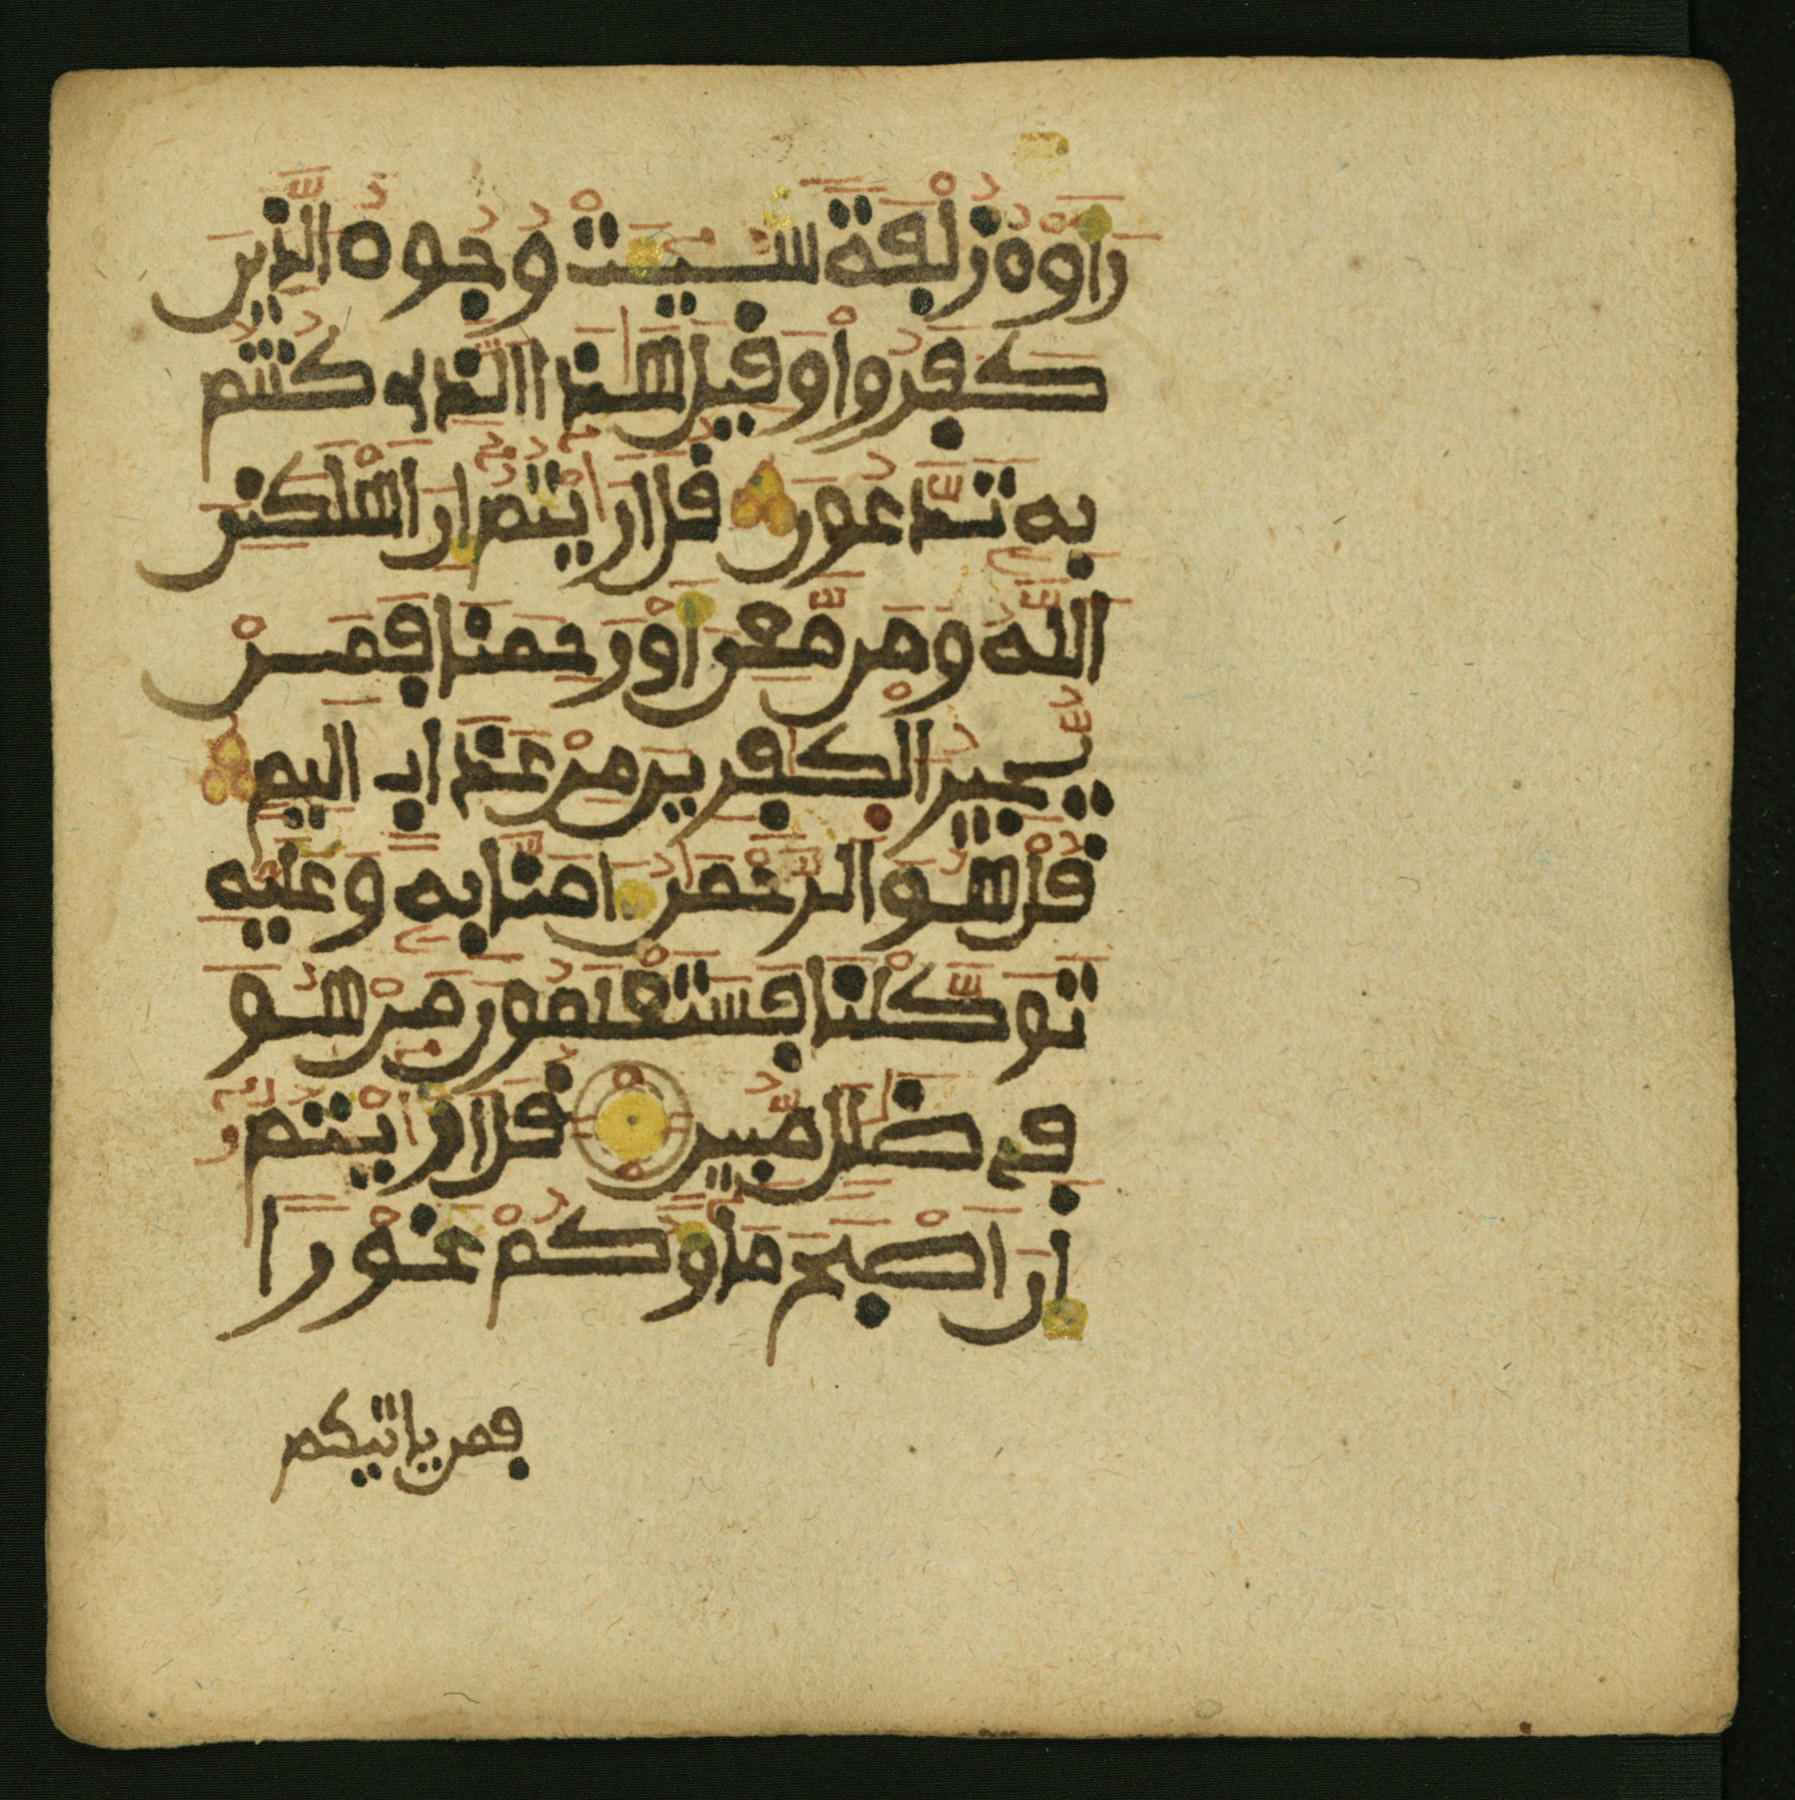 راوه زلفة سيت وجوه الذين
كفروا وقيل هذا الذي كنتم
به تدعون قل اريتم ان اهلكني
الله ومن معي او رحمنا فمن
يجير الكفرين من عذاب اليم
قل هو الرحمن امنا به وعليه
توكلنا فستعلمون من هو
في ضلل مبين قل اريتم
ان اصبح ماوكم غورا
فمن ياتيكم